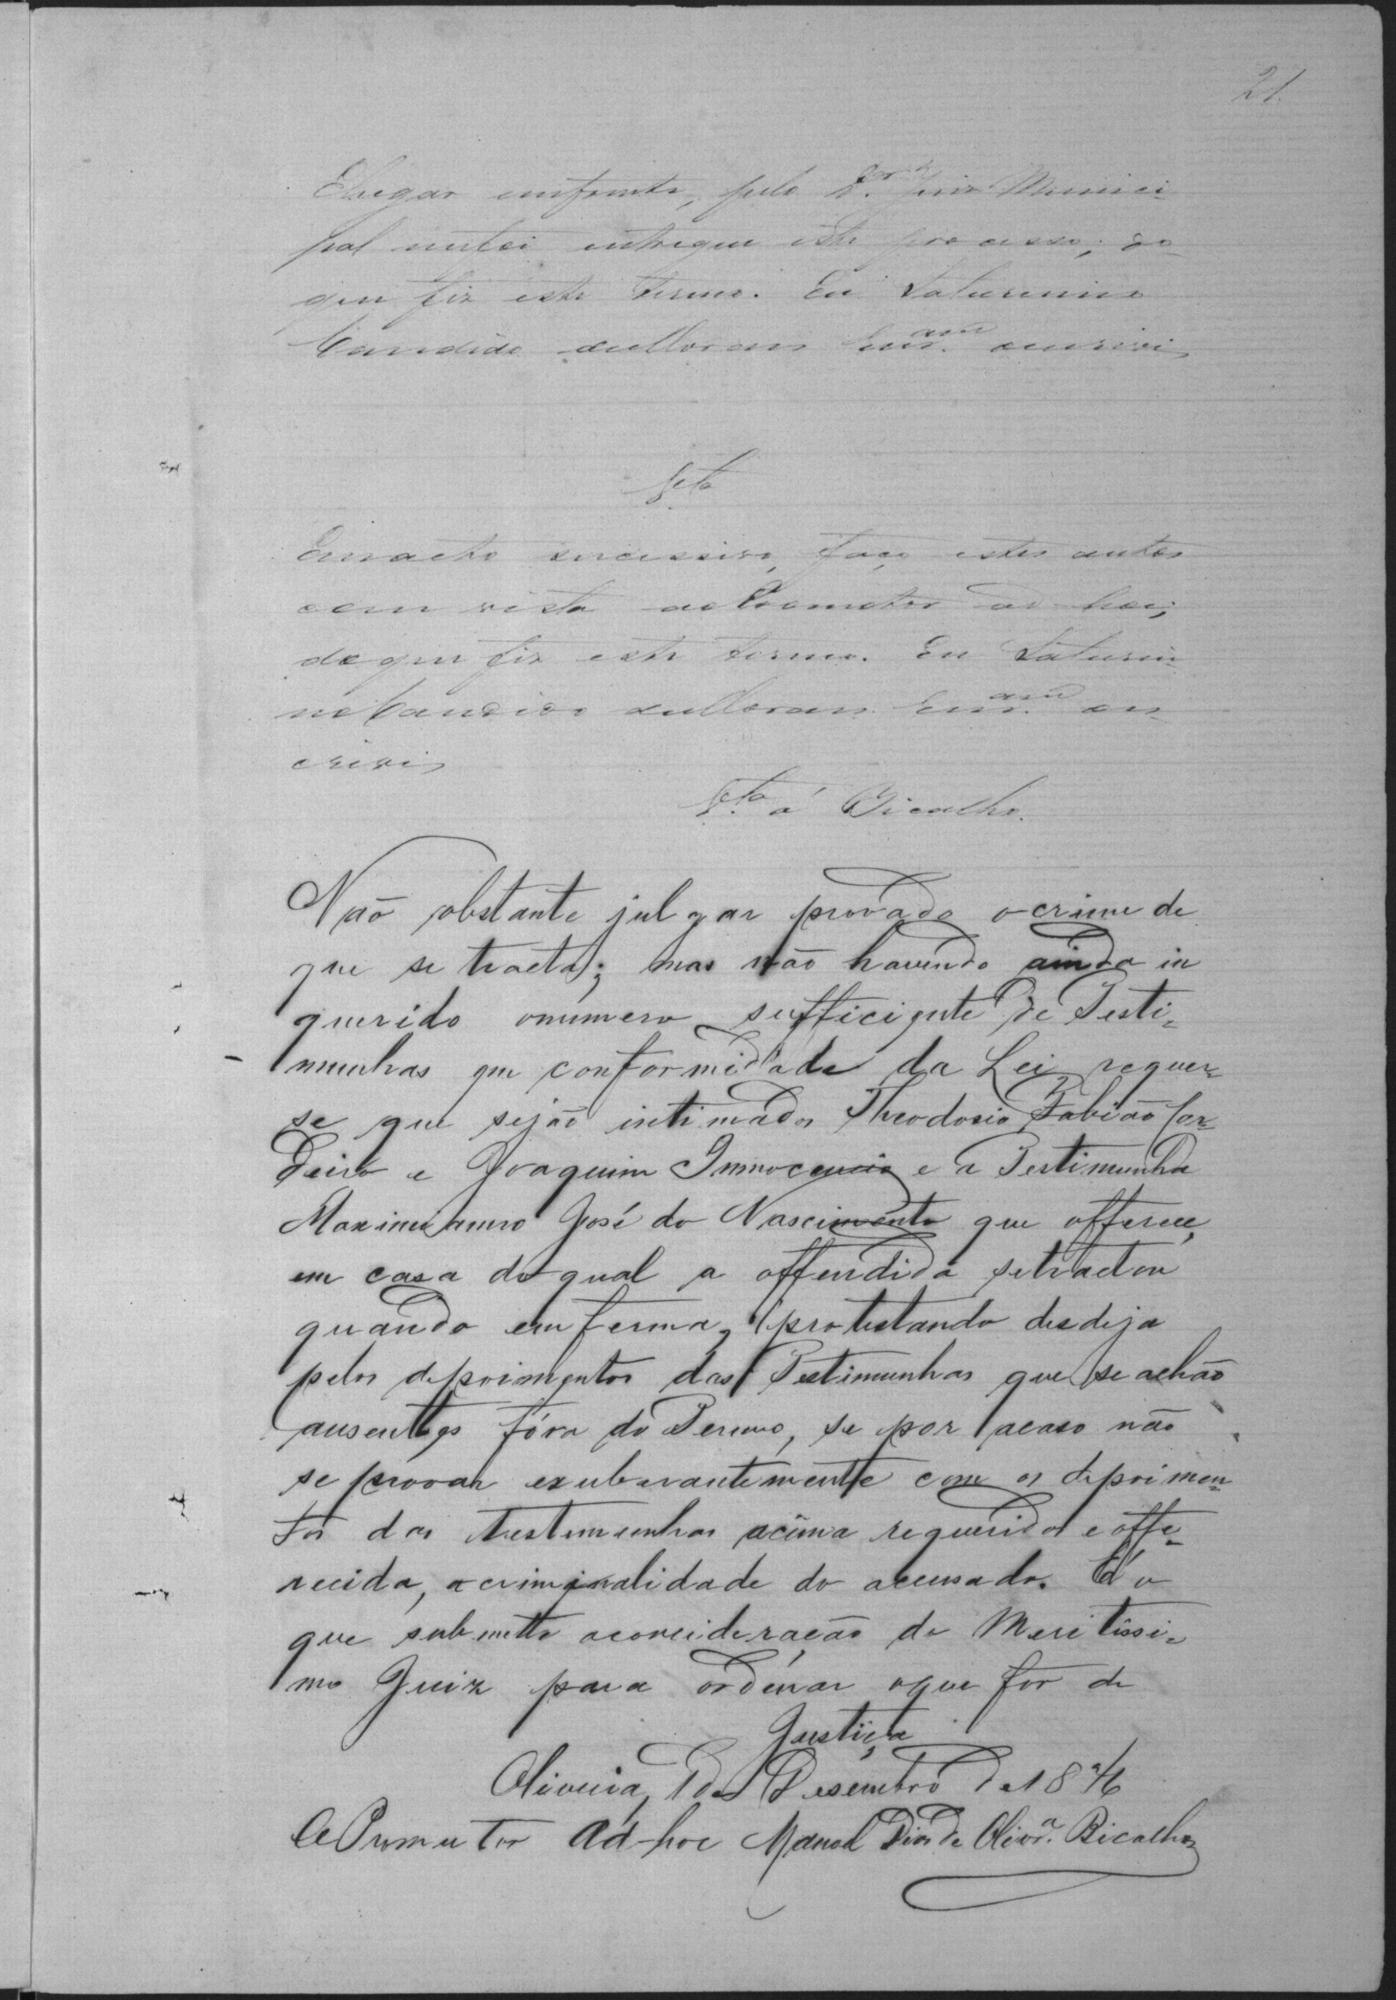 21.
pelo Dor. Juiz Munici-
pal entregue este processo; do
que fiz este termo. Eu Saturnino
Candido
Vta
Em acto successivo, faço estes autos
com vista ao Promotor ad hoc;
do que fiz este termo. Eu Saturni-
no Candido es-
crivi
Vta á Bicalho.
Não obstante julgar provado o crime de
que se tracta; mas não havendo ainda in
querido o numero sufficiente de Testi-
munhas em conformidade da Lei, requer-
se que sejão intimados Theodosio, Fabião Cor-
deiro e Joaquim Innocencio e a Testimunha
José do Nascimento que offerece,
em casa do qual a offendida se tractou
quando emferma, protestando desdeja
pelos depoimentos das Testimunhas que se achão
ausentes fóra do Termo, se por acaso não
se provar exuberantemente com os depoimen-
tos das testemunhas acima requeridos e offe-
recida, a criminalidade do accusado. É o
que submetto a concideração do Meritissi-
mo Juiz para ordenar o que for de
Justiça
Oliveira, 1 de Desembro de 1876
O Promutor Ad-hoc Manoel Dias de Olivra. Bicalho